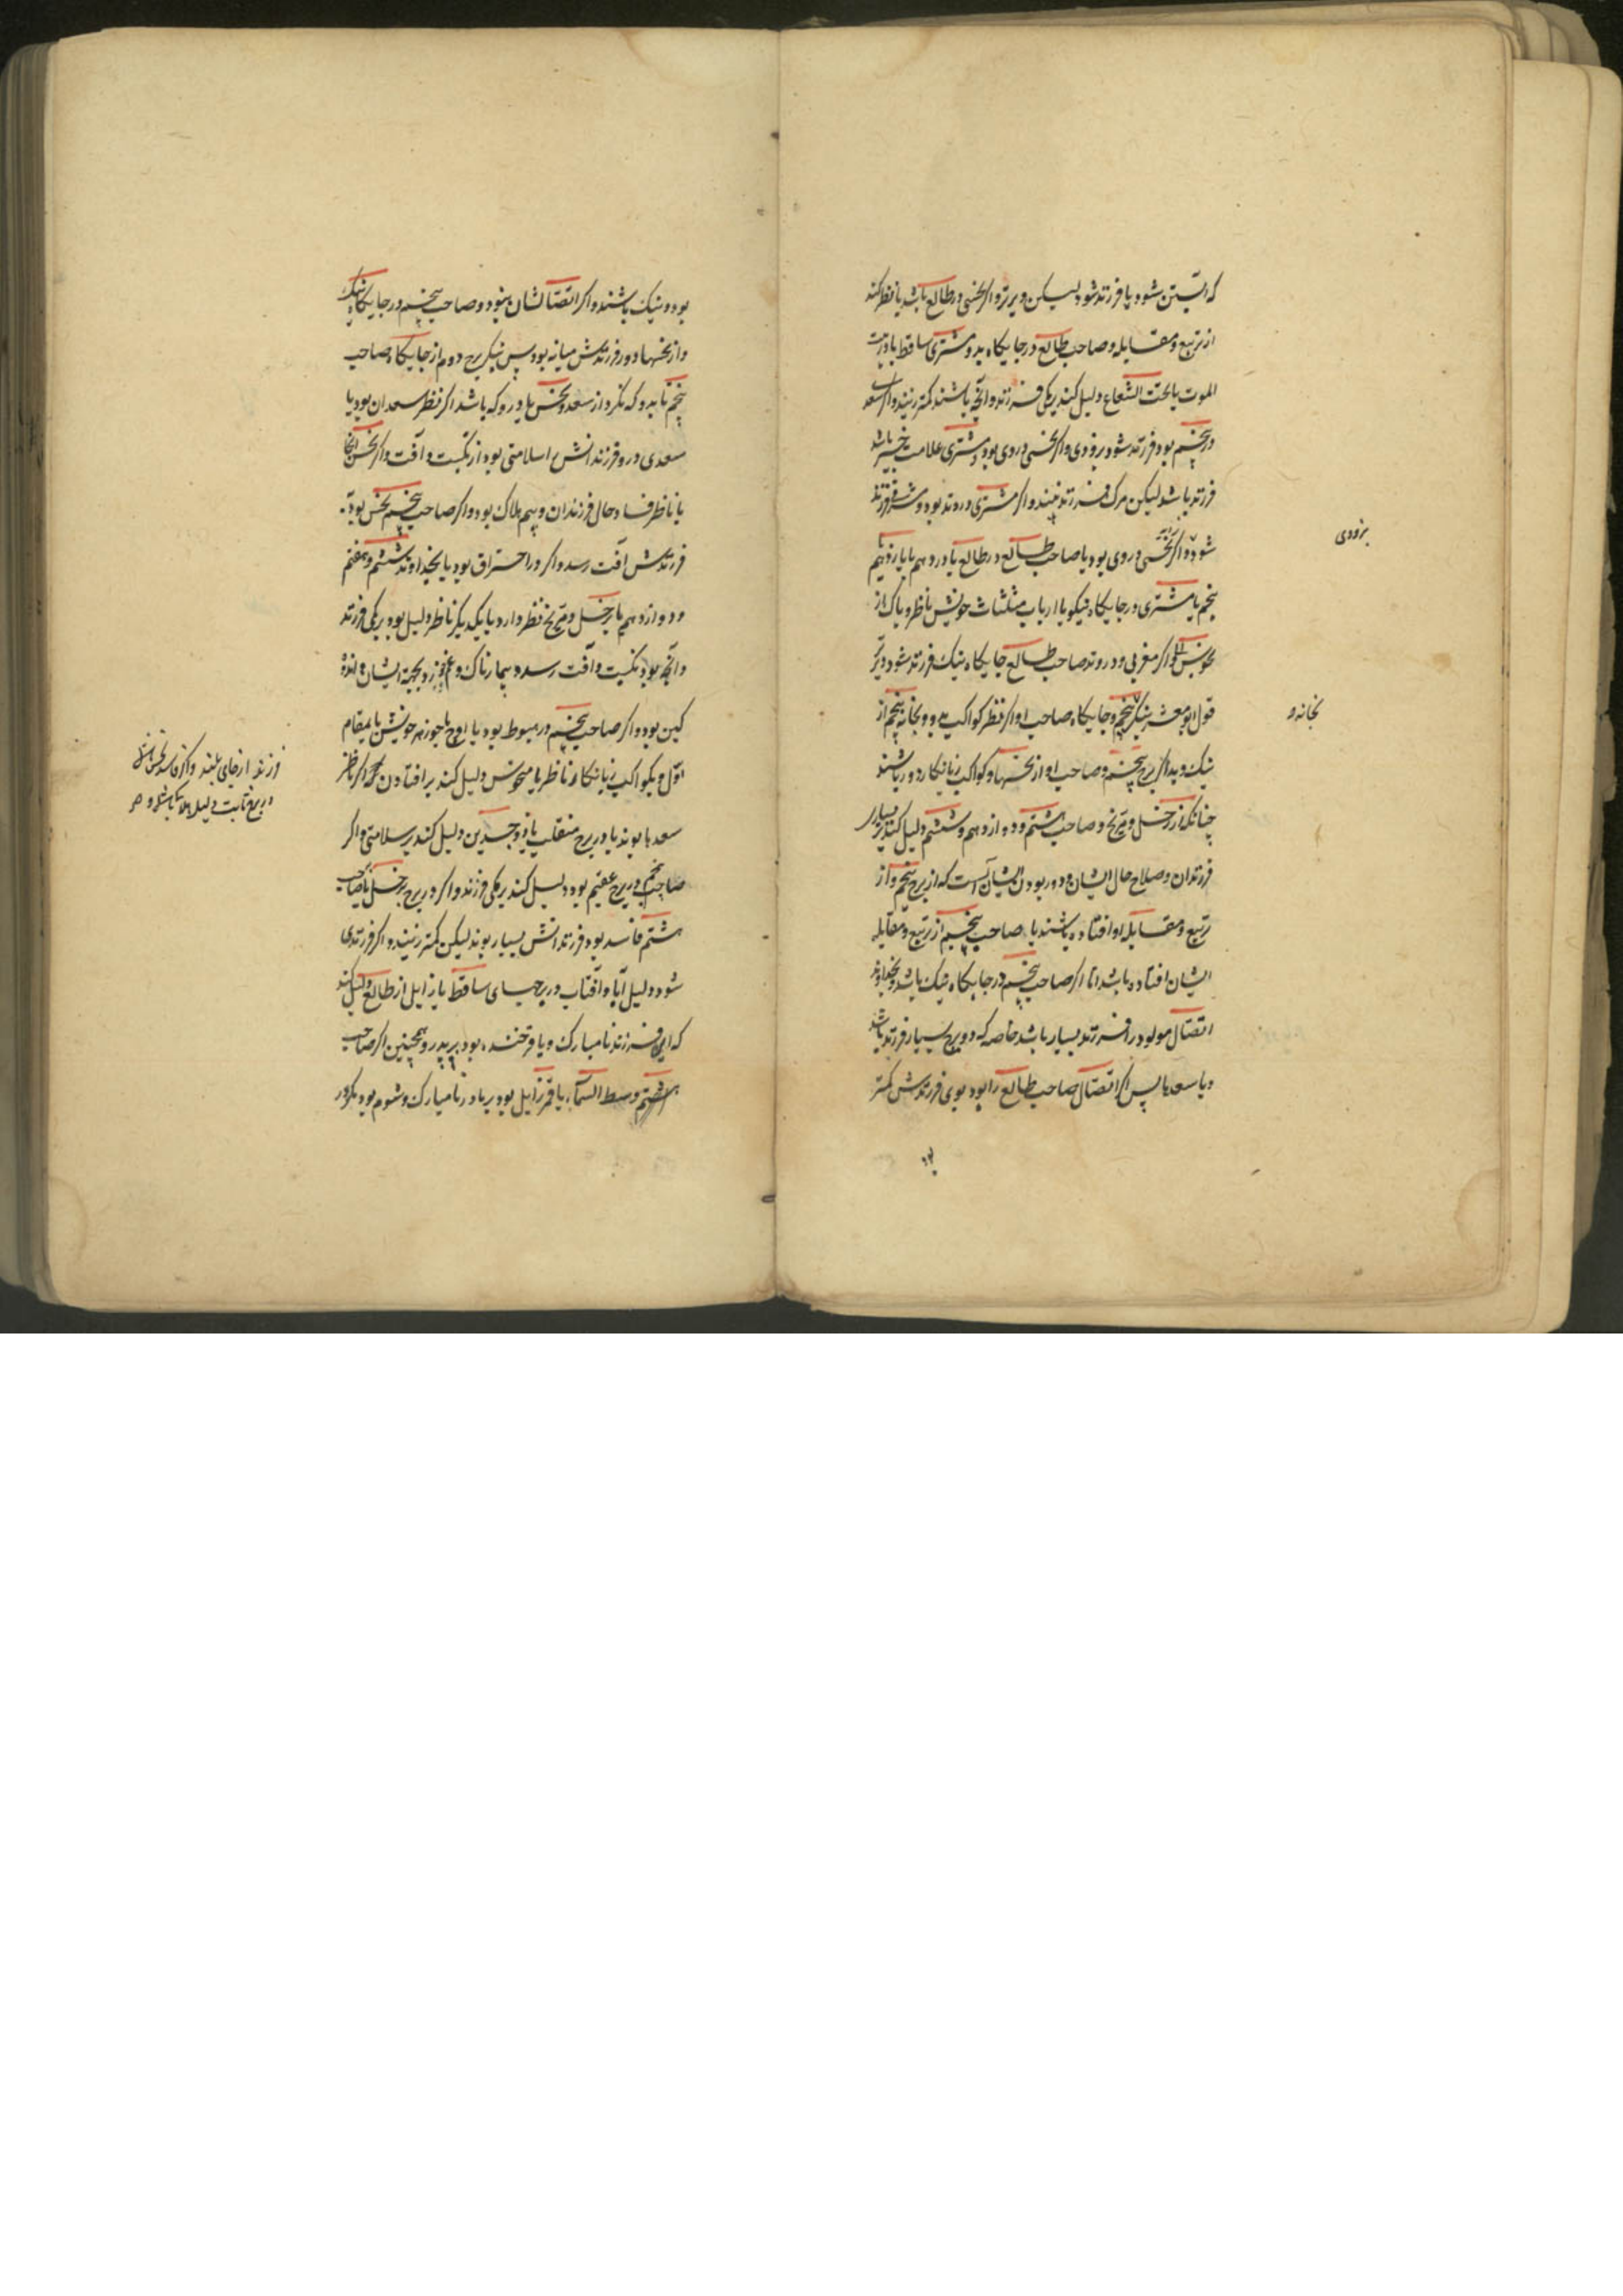 که آبستن شود یا فرزند شود لیکن دیرتر و اگر نحسی در طالع باشد یا نظر کند
از تربیع و مقابله و صاحب طالع در جایگاه بد و مشتری ساقط یا در بیت
الموت یا تحت الشعاع دلیل کند بر کمی فرزند و آنچه باشند کمتر زیند و اگر سعد
در پنجم بود فرزند شود بزودی و اگر نحسی در وی بود و مشتری علامت خیر باشد
فرزند باشد لیکن مرگ فرزند بیند و اگر مشتری در وتد بود
شود و اگر نحسی در وی بود یا صاحب طالع در طالع یا در دهم یا یازدهم
پنجم یا مشتری در جایگاه نیکو یا ارباب مثلثات خویش ناظر و پاک از
نحوس و اگر مغربی و در وتد صاحب طالع جایگاه نیک فرزند شود دیرتر
قول ابومعشر بنگر پنجم و جایگاه صاحب او اگر نظر کواکب بدو و بخانه پنجم از
نیک و بد اگر برج پنجم و صاحب او از نحسها و کواکب زیانکار دور باشند
چنانک از زحل و مریخ و صاحب هشتم و دوازدهم و ششم دلیل کند بر بسیاری
فرزندان و صلاح حال ایشان و دور بودن ایشان آنست که از برج پنجم و از
تربیع و مقابله او افتاده باشند یا صاحب پنجم از تربیع و مقابله
ایشان افتاده باشد اما اگر صاحب پنجم در جایگاه نیک باشد و بخداوند
اتصال مولود را فرزند بسیار باشد خاصه که در برج بسیار فرزند باشد
و با سعدها پس اگر اتصال صاحب طالع را بود بوی فرزندش کمتر
بزودی
بخانه و
بود
بود و نیک باشند و اگر اتصالشان نبود و صاحب پنجم در جایگاه نیک
و از نحسها دور فرزندش میانه بود پس بنگر برج دوم از جایگاه صاحب
پنجم تا بدو که نگرد از سعد و نحس یا در و که باشد اگر نظر سعدان بود یا
سعدی در و فرزندانش را سلامتی بود از نکبت و آفت و اگر نحس آنجا
یا ناظر فساد حال فرزندان و بیم هلاک بود و اگر صاحب پنجم نحس بود
فرزندش آفت رسد و اگر در احتراق بود یا بخداوند ششم و هفتم
و دوازدهم یا زحل و مریخ نظر دارد یا یکدیگر ناظر دلیل بود بر کمی فرزند
و آنچه بود نکبت و آفت رسد و بیمارناک و غم و بجهة ایشان اندوه
کین بود و اگر صاحب پنجم در هبوط بود یا اوج یا جوزهر خویش یا بمقام
اول و بکواکب زیانکار ناظر یا منحوس دلیل کند بر افتادن و اگر ناظر
سعدها بوند یا در برج منقلب یا ذو جسدین دلیل کند بر سلامتی و اگر
صاحب پنجم در برج عقیم بود دلیل کند بر کمی فرزند و اگر در برج زحل یا صاحب
هشتم فاسد بود فرزندانش بسیار بوند لیکن کمتر زیند و اگر فرزندی
شود و دلیل آبا و آفتاب در برجهای ساقط یا زایل از طالع دلیل کند
که این فرزند نامبارک و یا فرخنده بود بر پدر و همچنین اگر صاحب
هشتم وسط السماء یا قمر زایل بود بر مادر نامبارک و شوم بود مگر در
فرزند از جای بلند و اگر فاسد
در برج ثابت دلیل هلاک باشد و